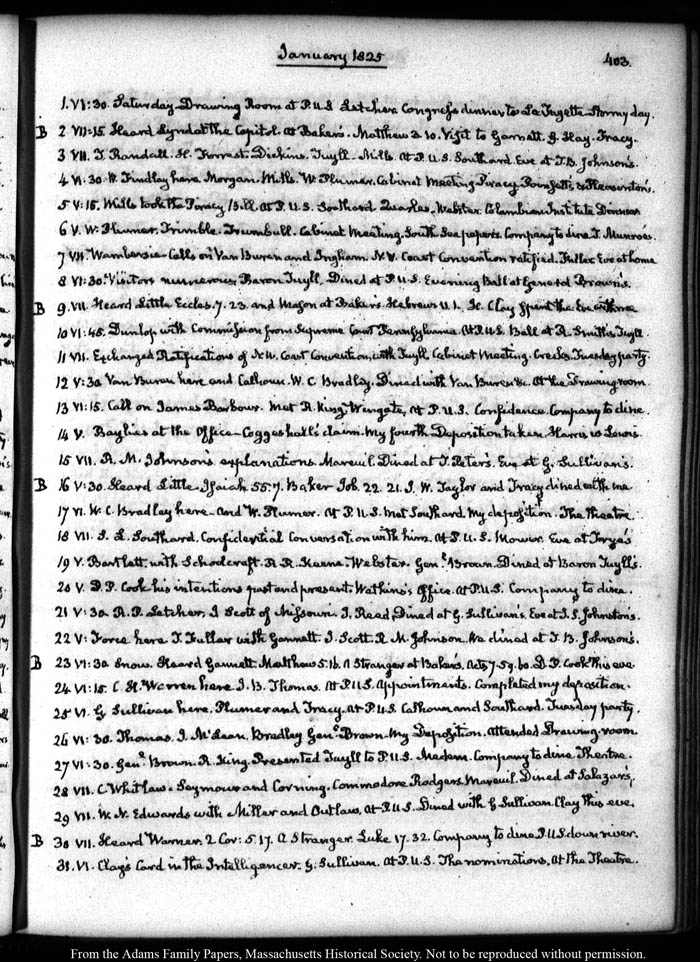 January 1825
403.
1. VI:30. Saturday. Drawing Room at P.U.S. Letcher. Congress dinner to La Fayette. Stormy day.
B 2 VII:15. Heard Lynd at the Capitol. at Baker's. Matthew 3. 10. Visit to Garnett. G. Hay. Tracy.
3 VII. T. Randall. H. Forrest. Dickins. Tuyll. Mills. At P.U.S. Southard. Eve at T.B. Johnson's.
4 VI:30. W. Findlay here. Morgan. Mills. W. Plumer. Cabinet Meeting. Piracy. Poinsett's & Pleasonton's.
5 V:15. Mills took the Piracy Bill. At P.U.S. Southard. Quakers. Webster. Columbian Institute Dinner
6 V. W. Plumer. Trimble. Trumbull. Cabinet Meeting. South Sea papers. Company to dine. T. Munroe's.
7 VII. Wambersie. Calls on Van Buren and Ingham. N.W. Coast Convention ratified. Fuller. Eve at home
8 VI:30. Visitors numerous. Baron Tuyll. Dined at P.U.S. Evening Ball at General Brown's.
B 9. VII. Heard Little. Eccles. 7. 23. and Mason at Baker's. Hebrews 11. 1. H. Clay spent the Eve with me
10 VI:45. Dunlop with Commission from Supreme Court Pennsylvania. At P.U.S. Ball at R. Smith's. Tuyll.
11 VII. Exchanged Ratifications of N.W. Coast Convention, with Tuyll. Cabinet Meeting. Creeks. Tuesday party.
12 V:30 Van Buren here and Calhoun. W. C. Bradley. Dined with Van Buren &c. At the Drawing room.
13 VI:15. Call on James Barbour. Met R. King. Wingate. at P.U.S. Confidence. Company to dine.
14 V. Baylies at the Office. Coggeshall's claim. My fourth Deposition taken. Harris Lewis.
15 VII. R. M. Johnson's explanations. Mareuil. Dined at T. Peter's. Eve at G. Sullivan's.
B 16 V:30. Heard Little. Isaiah 55. 7. Baker Job. 22. 21. J. W. Taylor and Tracy dined with me
17 VI. W. C. Bradley here. and W. Plumer. At P.U.S. met Southard. My deposition. The theatre.
18 VII. S. L. Southard. Confidential Conversation with him. At P.U.S. Mower. Eve at Forye's
19 V. Bartlett, with Schoolcraft. R. R. Keene. Webster. Gen.l Brown. Dined at Baron Tuyll's.
20 V. D. P. Cook his intentions past and present. Watkins's Office. At P.U.S. Company to dine.
21 V:30. R. P. Letcher, J. Scott of Missouri. J. Reed. Dined at G. Sullivan's. Eve at J. S. Johnston's.
22 V: Force here T. Fuller with Gannett. J. Scott. R. M. Johnson. We dined at T. B. Johnson's.
B 23 VI:30. Snow. Heard Gannett. Matthew 5. 16. A Stranger at Baker's, Acts 7. 59. 60. D. P. Cook this eve.
24 VI:15. C. H. Warren here. J. B. Thomas. At P.U.S. Appointments. Completed my deposition.
25 VI. G. Sullivan here. Plumer and Tracy. At P.U.S. Calhoun and Southard. Tuesday party.
26 VI:30. Thomas. J. McLean. Bradley. Gen.l Brown. My Deposition. Attended Drawing-room
27 VI:30. Gen.l Brown. R. King. Presented Tuyll to P.U.S. Medem. Company to dine. Theatre.
28 VII. C. Whitlaw. Seymour and Corning. Commodore Rodgers. Mareuil. Dined at Salazar's,
29 VII. W. N. Edwards with Miller and Outlaw. At P.U.S. Dined with G Sullivan. Clay this eve.
B 30 VII. Heard Warner. 2 Cor: 5. 17. A Stranger. Luke 17. 32. Company to dine. P.U.S. down river.
31. VI. Clay's Card in the Intelligencer. G. Sullivan. At P.U.S. The nominations. At the Theatre.
From the Adams Family Papers, Massachusetts Historical Society. Not to be reproduced without permission.